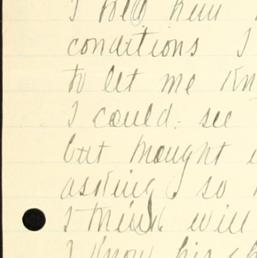 I told him
conditions I
to let me kn
I could. see
but thought i
asking, so
I think will
I know his ch